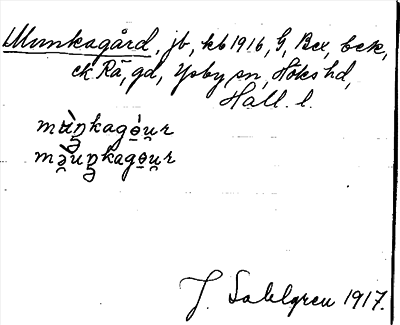 Munkagård, jb, kb 1916, G, Bex, bek,
ek Rä, gd, Ysby sn, Höks hd,
Hall. l.
mɯ̀ŋkagɵ́u̯r
mə̯̀uŋkagɵu̯r
J. Sahlgren 1917.